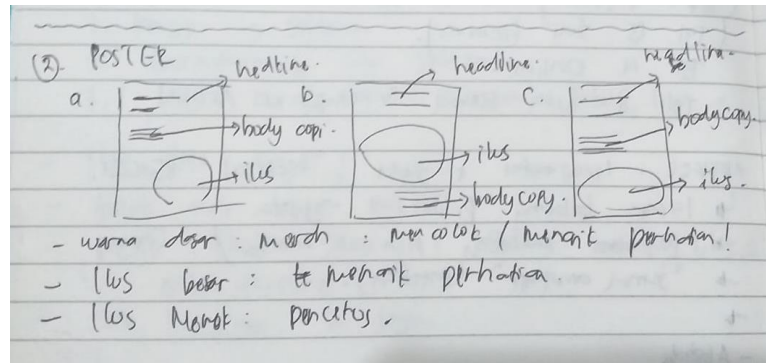 (2). POSTER
a.
hedline.
body copi.
ilus
b.
headline.
ilus
body copy.
C.
headline.
body copy.
ilus.
- warna dasar : Merah : mencolok / menarik perhatian!
- Ilus besar : menarik perhatian.
- Ilus Monot : pencetus.